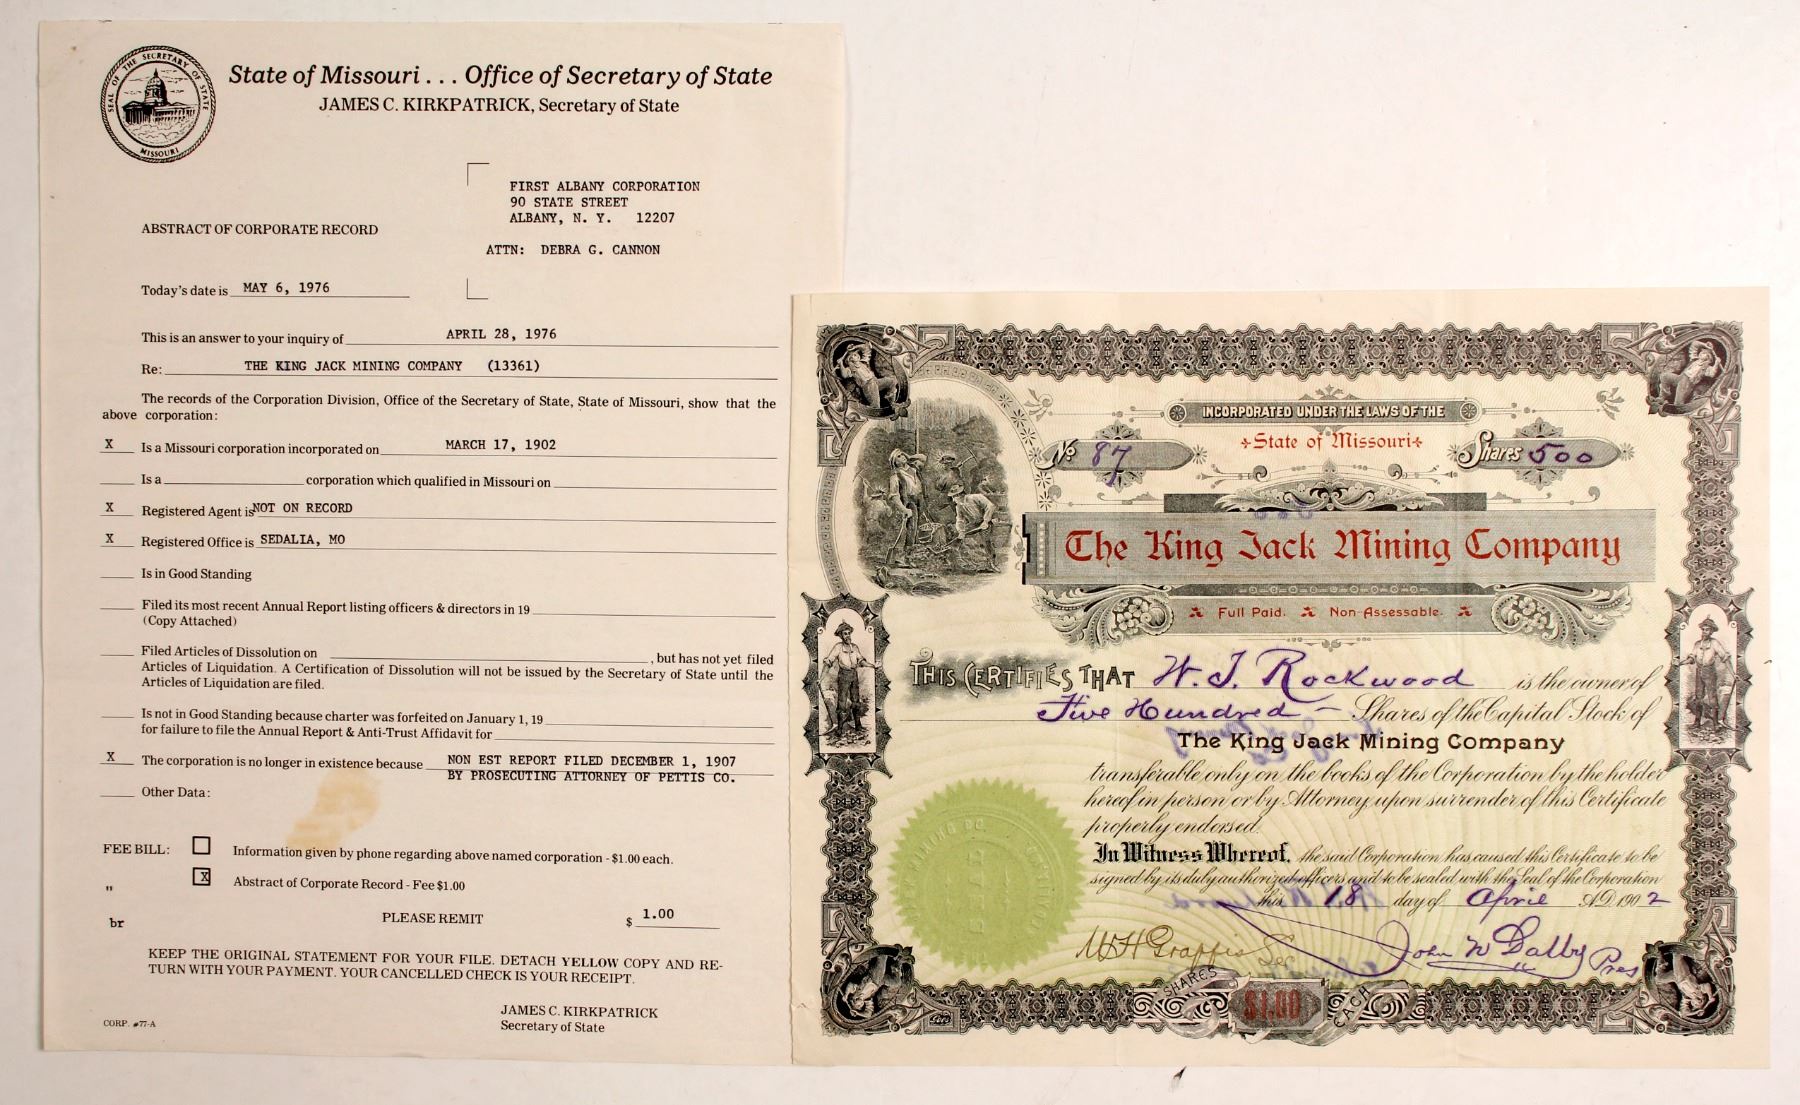 SEAL OF THE SECRETARY OF STATE
MISSOURI
State of Missouri . . . Office of Secretary of State
JAMES C. KIRKPATRICK, Secretary of State
FIRST ALBANY CORPORATION
90 STATE STREET
ALBANY, N. Y. 12207
ABSTRACT OF CORPORATE RECORD
ATTN: DEBRA G. CANNON
Today's date is MAY 6, 1976
This is an answer to your inquiry of APRIL 28, 1976
Re: THE KING JACK MINING COMPANY (13361)
The records of the Corporation Division, Office of the Secretary of State, State of Missouri, show that the
above corporation:
X Is a Missouri corporation incorporated on MARCH 17, 1902
Is a corporation which qualified in Missouri on
X Registered Agent is NOT ON RECORD
X Registered Office is SEDALIA, MO
Is in Good Standing
Filed its most recent Annual Report listing officers & directors in 19
(Copy Attached)
Filed Articles of Dissolution on , but has not yet filed
Articles of Liquidation. A Certification of Dissolution will not be issued by the Secretary of State until the
Articles of Liquidation are filed.
Is not in Good Standing because charter was forfeited on January 1, 19
for failure to file the Annual Report & Anti-Trust Affidavit for
X The corporation is no longer in existence because NON EST REPORT FILED DECEMBER 1, 1907
BY PROSECUTING ATTORNEY OF PETTIS CO.
Other Data:
FEE BILL: Information given by phone regarding above named corporation - $1.00 each.
" X Abstract of Corporate Record - Fee $1.00
br PLEASE REMIT $ 1.00
KEEP THE ORIGINAL STATEMENT FOR YOUR FILE. DETACH YELLOW COPY AND RE-
TURN WITH YOUR PAYMENT. YOUR CANCELLED CHECK IS YOUR RECEIPT.
JAMES C. KIRKPATRICK
Secretary of State
CORP. #77-A
INCORPORATED UNDER THE LAWS OF THE
State of Missouri
No 87
Shares 500
The King Jack Mining Company
Full Paid. Non-Assessable.
THIS CERTIFIES THAT W. J. Rockwood is the owner of
Five Hundred — Shares of the Capital Stock of
The King Jack Mining Company
transferable only on the books of the Corporation by the holder
hereof in person or by Attorney upon surrender of this Certificate
properly endorsed.
In Witness Whereof, the said Corporation has caused this Certificate to be
signed by its duly authorized officers and to be sealed with the Seal of the Corporation
this 18 day of April A.D. 1902
WH Graffis Sec
John W Dalby Pres
SHARES $1.00 EACH